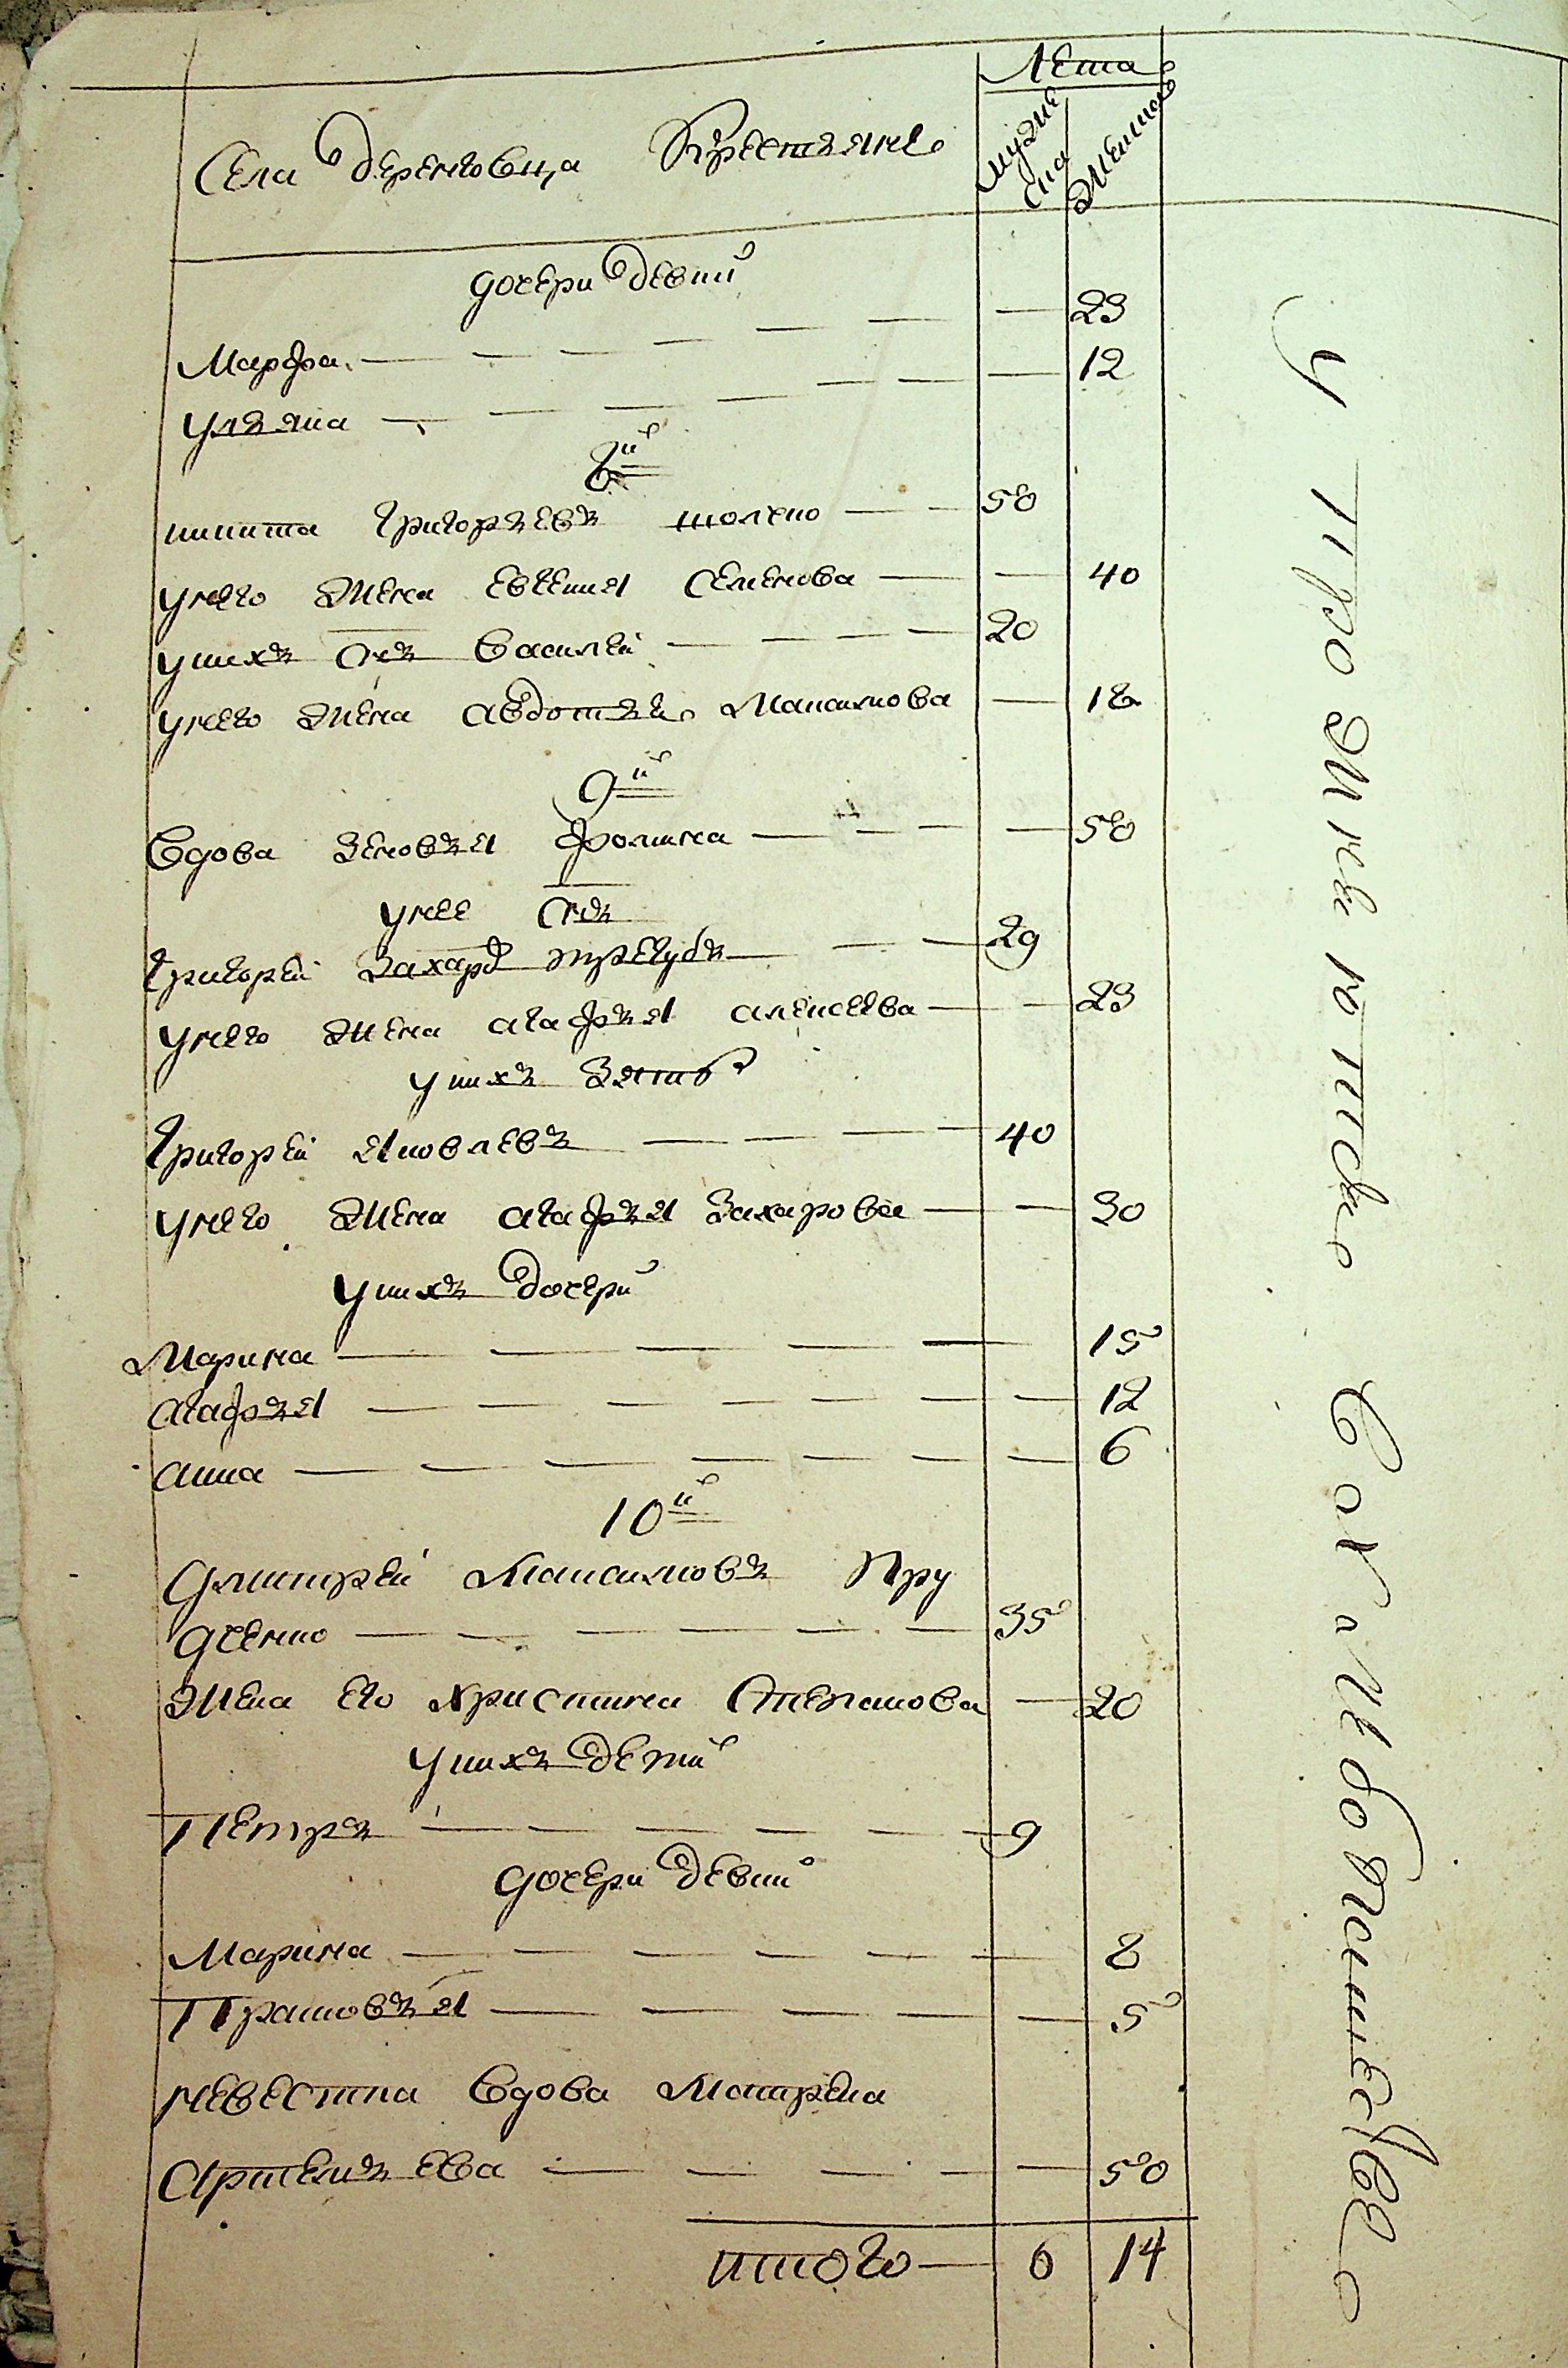 Лета
Села деренковца Крестяне
мужеска
женска
дочери девки
Марфа 23
уляяна 12
8й
никита григорьевъ 50
унего жена Евгения Семенова 40
унихъ Снъ Василей 20
унего жена авдотья Максимова 18
9й
Вдова Зеновъя фомина 50
унее Снъ
григорей Захаръ трегубъ 29
унего жена агафъя алексеева 23
унихъ Зять
григорей яковлевъ 40
унего жена агафъя Захарова 30
унихъ дочери
Марина 15
агафъя 12
анна 6
10й
дмитрей Максимовъ Пру
дченко 35
жена его Христина Степанова 20
унихъ дети
Петръ 9
дочери девки
Марина 8
Прасковъя 5
невестка вдова Мотрена
Артемъева 50
итого 6 14